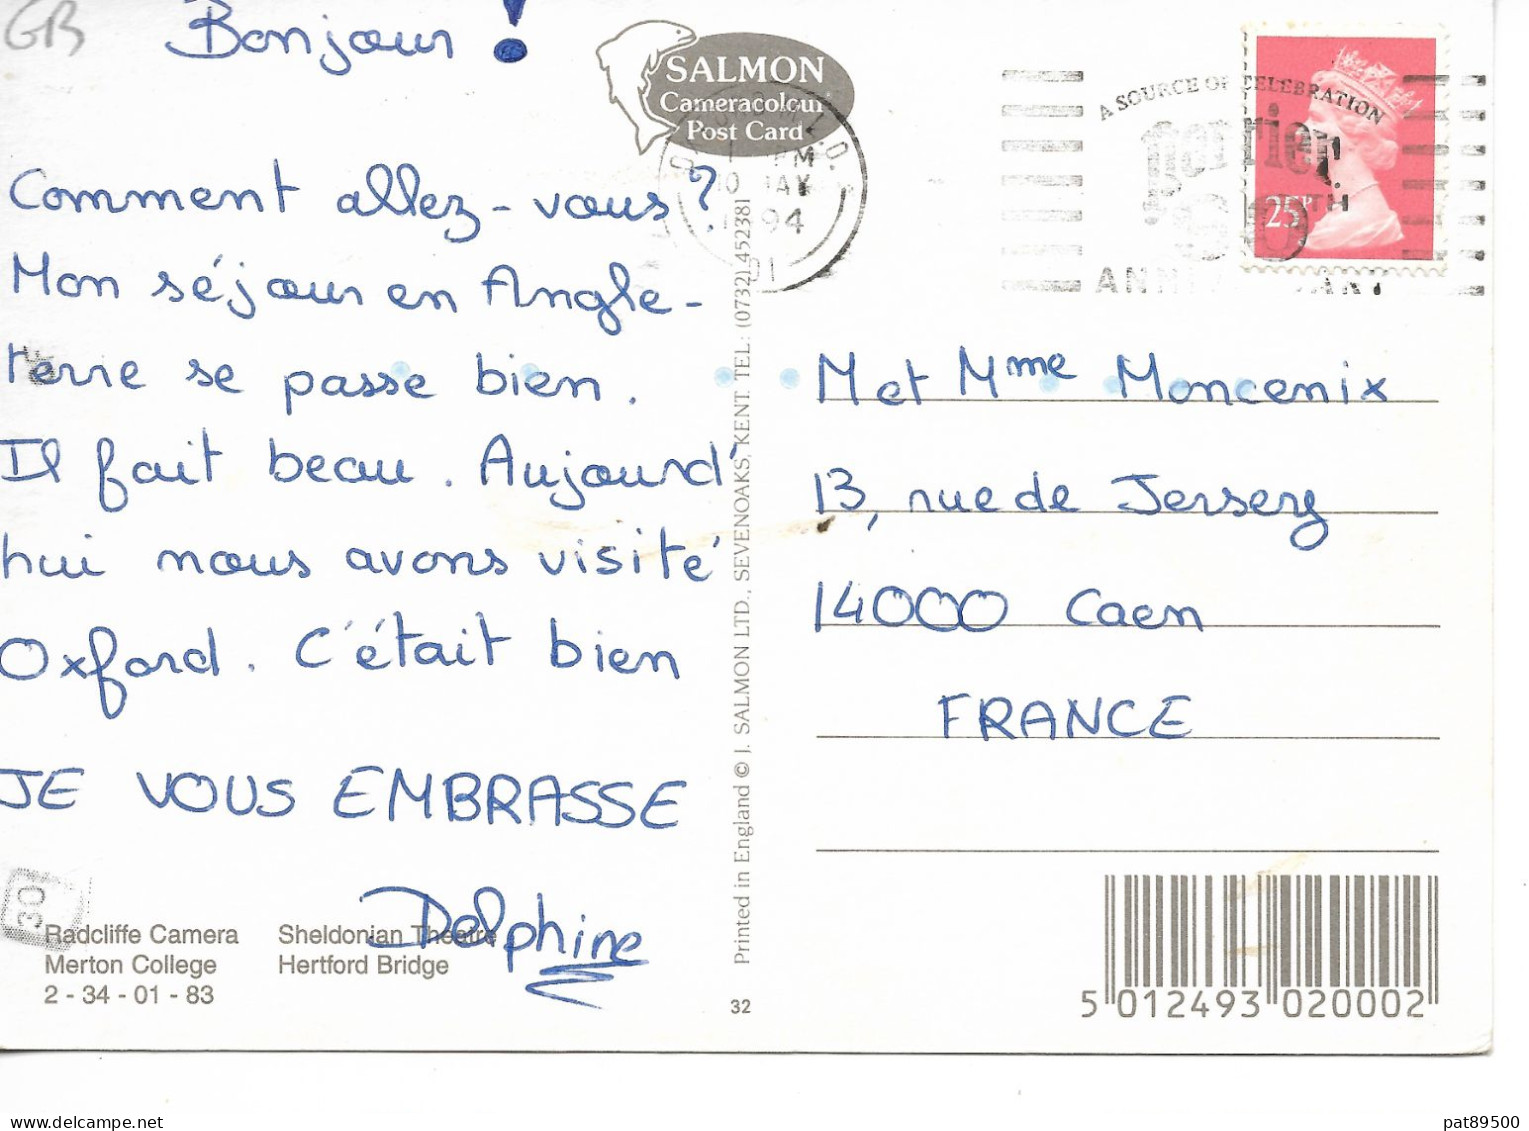 GB
Bonjour !
Comment allez-vous ?
Mon séjour en Angle-
terre se passe bien.
Il fait beau. Aujourd'
hui nous avons visité
Oxford. C'était bien
JE VOUS EMBRASSE
Delphine
Radcliffe Camera
Merton College
2 - 34 - 01 - 83
Sheldonian Theatre
Hertford Bridge
30
SALMON
Cameracolour
Post Card
PM
94
Printed in England © J. SALMON LTD., SEVENOAKS, KENT. TEL: (0732) 452381
32
A SOURCE OF CELEBRATION
perrier
25P
M et Mme Moncenix
13, rue de Jersey
14000 Caen
FRANCE
5 012493 020002
pat89500